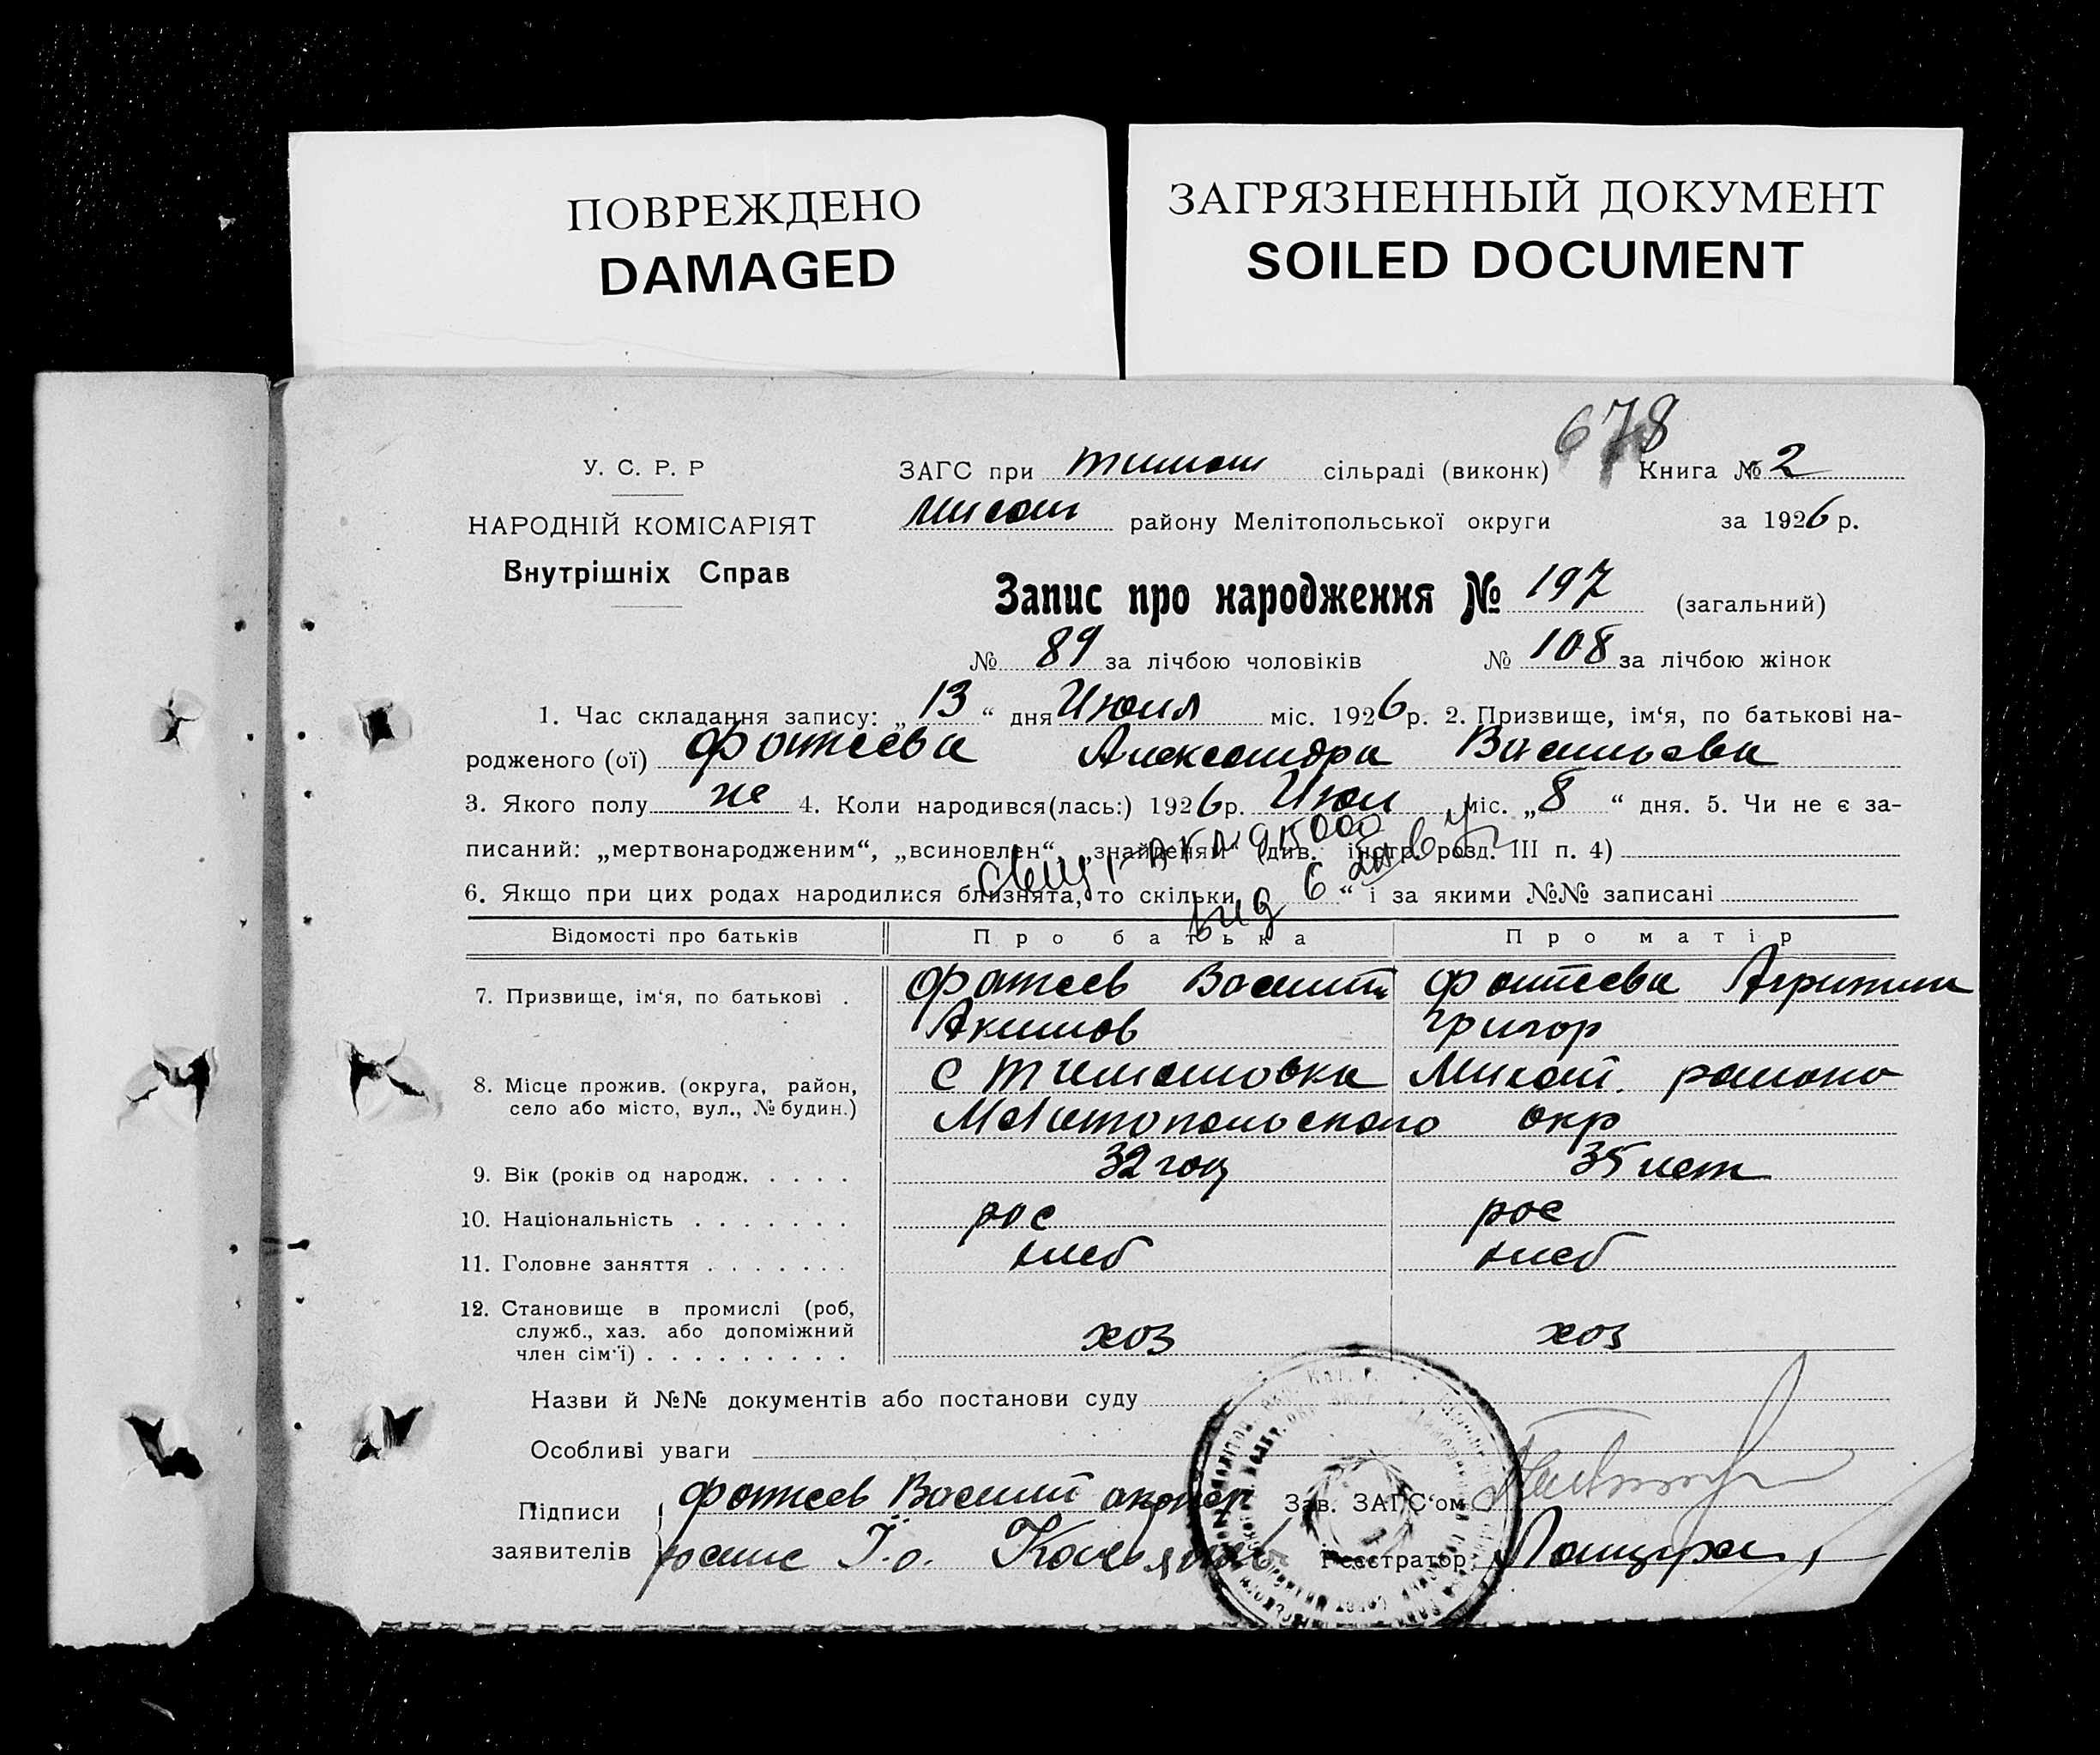 ПОВРЕЖДЕНО
DAMAGED
ЗАГРЯЗНЕННЫЙ ДОКУМЕНТ
SOILED DOCUMENT
678
У. С. Р. Р
НАРОДНІЙ КОМІСАРІЯТ
Внутрішніх Справ
ЗАГС при тимош сільраді (виконк) Книга № 2
району Мелітопольської округи за 1926 р.
Запис про народження № 197 (загальний)
№ 89 за лічбою чоловіків № 108 за лічбою жінок
1. Час складання запису: „13“ дня Июля міс. 1926 р. 2. Призвище, ім‘я, по батькові на-
родженого (ої) Фатеева Александра Васильева
3. Якого полу же 4. Коли народився(лась:) 1926 р. Июл міс. „8“ дня. 5. Чи не є за-
писаний: „мертвонародженим“, „всиновлен“, „знайдений“ (див. інстр. розд. III п. 4)
6. Якщо при цих родах народилися близнята, то скільки “ і за якими №№ записані
Відомості про батьків Про батька Про матір
7. Призвище, ім‘я, по батькові . Фатеев Василий Фатеева Агрипина
Акимов Григор
8. Місце прожив. (округа, район, село або місто, вул., № будин.) с Тимошовка Михай. района
Мелитопольского окр
9. Вік (років од народж. . . . . 32 год 35 лет
10. Національність . . . . . . . рос рос
11. Головне заняття . . . . . . . хлеб хлеб
12. Становище в промислі (роб,
служб., хаз. або допоміжний
член сім‘ї) . . . . . . . . . хоз хоз
Назви й №№ документів або постанови суду
Особливі уваги
Підписи Фатеев Василий Зав. ЗАГС‘ом
заявителів Реєстратор